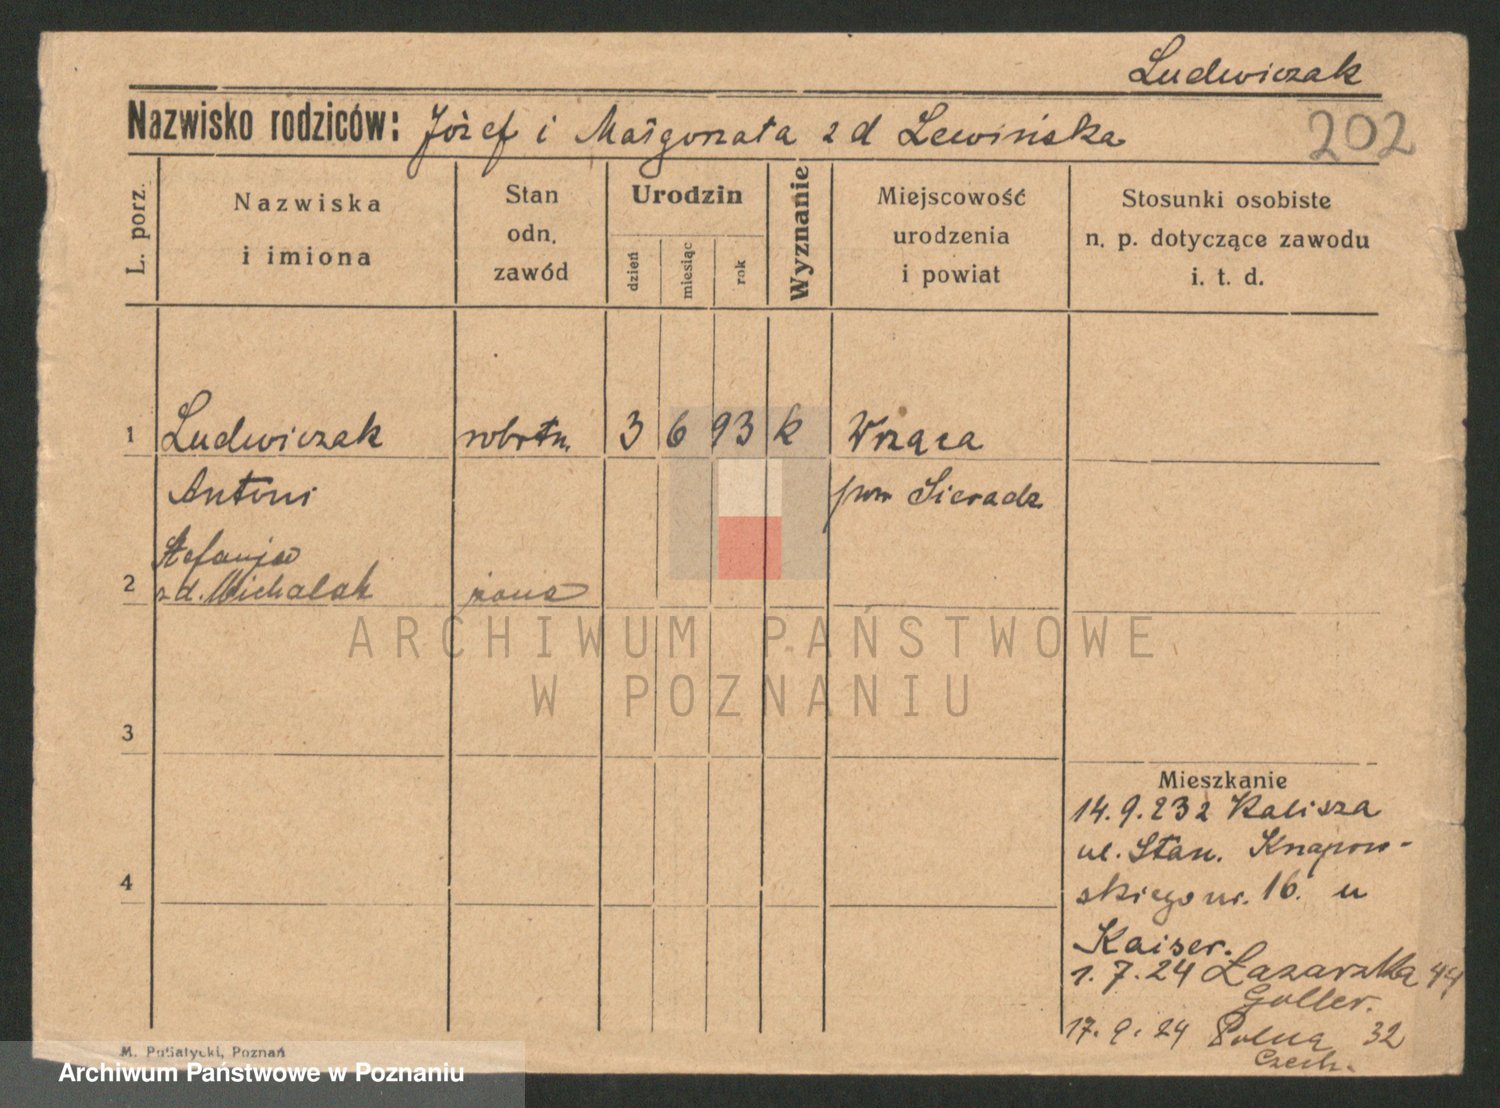 Ludwiczak
Nazwisko rodziców: Józef i Małgorzata z d Lewińska
202
L. porz.
Nazwiska
i imiona
Stan
odn.
zawód
Urodzin
dzień
miesiąc
rok
Wyznanie
Miejscowość
urodzenia
i powiat
Stosunki osobiste
n. p. dotyczące zawodu
i. t. d.
1 Ludwiczak robotn. 3 6 93 k Wrząca
Antoni pow Sieradz
Stefanja
2 z d. Michalak żona
ARCHIWUM PAŃSTWOWE
W POZNANIU
3
Mieszkanie
14.9.23 z Kalisza
ul. Stan. Knapow-
4
skiego nr. 16. u
Kaiser.
1.7.24 Łazarska 44
Goller.
17.9.24 Polna 32
Czech.
M. Putiatycki, Poznań
Archiwum Państwowe w Poznaniu